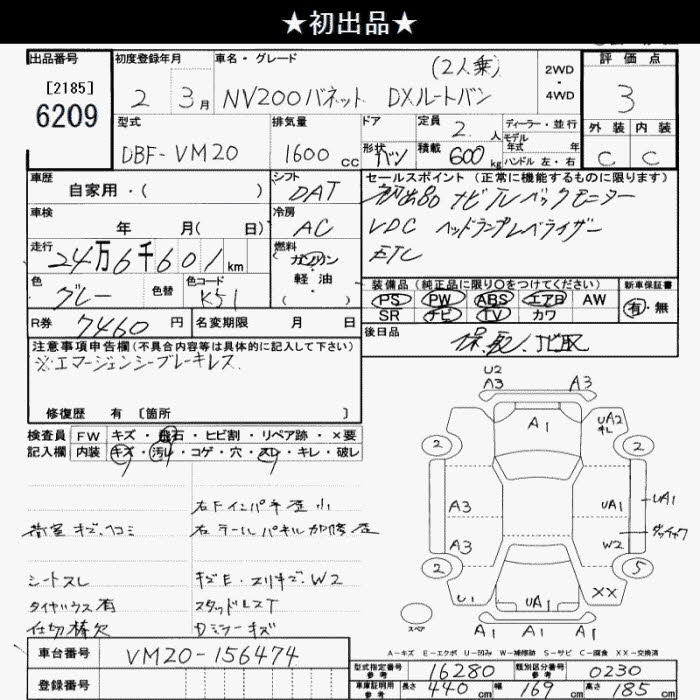 ★初出品★
出品番号
[2185]
6209
初度登録年月
2 3月
車名・グレード
(2人乗)
NV200バネット DXルートバン
2WD
・
4WD
評価点
3
外装 内装
C C
型式
DBF-VM20
排気量
1600 cc
ドア
形状
バン
定員 2 人
積載 600 kg
ディーラー・並行
モデル
年式 年
ハンドル 左・右
車歴
自家用・( )
シフト
DAT
車検
年 月( 日)
冷房
AC
走行
24万6千601km
燃料
ガソリン
・
軽油
・
( )
色
グレー
色替
色コード
K51
R券 7460 円
名変期限 月 日
セールスポイント (正常に機能するものに限ります)
初出品 ナビ TV バックモニター
VDC ヘッドランプレベライザー
ETC
装備品 (純正品に限り○をつけてください)
PS PW ABS エアB AW
SR ナビ TV カワ
新車保証書
有・無
後日品
保、取、ナビ取
注意事項申告欄 (不具合内容等は具体的に記入して下さい)
※エマージェンシーブレーキレス
修復歴 有 [箇所 ]
検査員
記入欄
FW キズ・飛石・ヒビ割・リペア跡・×要
内装 キズ・汚レ・コゲ・穴・スレ・キレ・破レ
右Fインパネ歪小
荷室 キズ、ヘコミ
右テールパネル加修歪
シートスレ
キズE・スリキズ・W2
タイヤハウス有
スタッドレスT
仕切棒欠
Dミラーキズ
U2
A3 A3
A1
UA2
キレ
2 2
A3 UA1 UA1
A3 W2 ダッシャク
2 5
U1 UA1 XX
A1 A1 A1
スペア
A-キズ E-エクボ U-凹み W-補修跡 S-サビ C-腐食 XX-交換済
車台番号
VM20-156474
登録番号
型式指定番号
参考
16280
類別区分番号
参考
0230
車庫証明用
参考
長さ 440 cm 幅 169 cm 高さ 185 cm